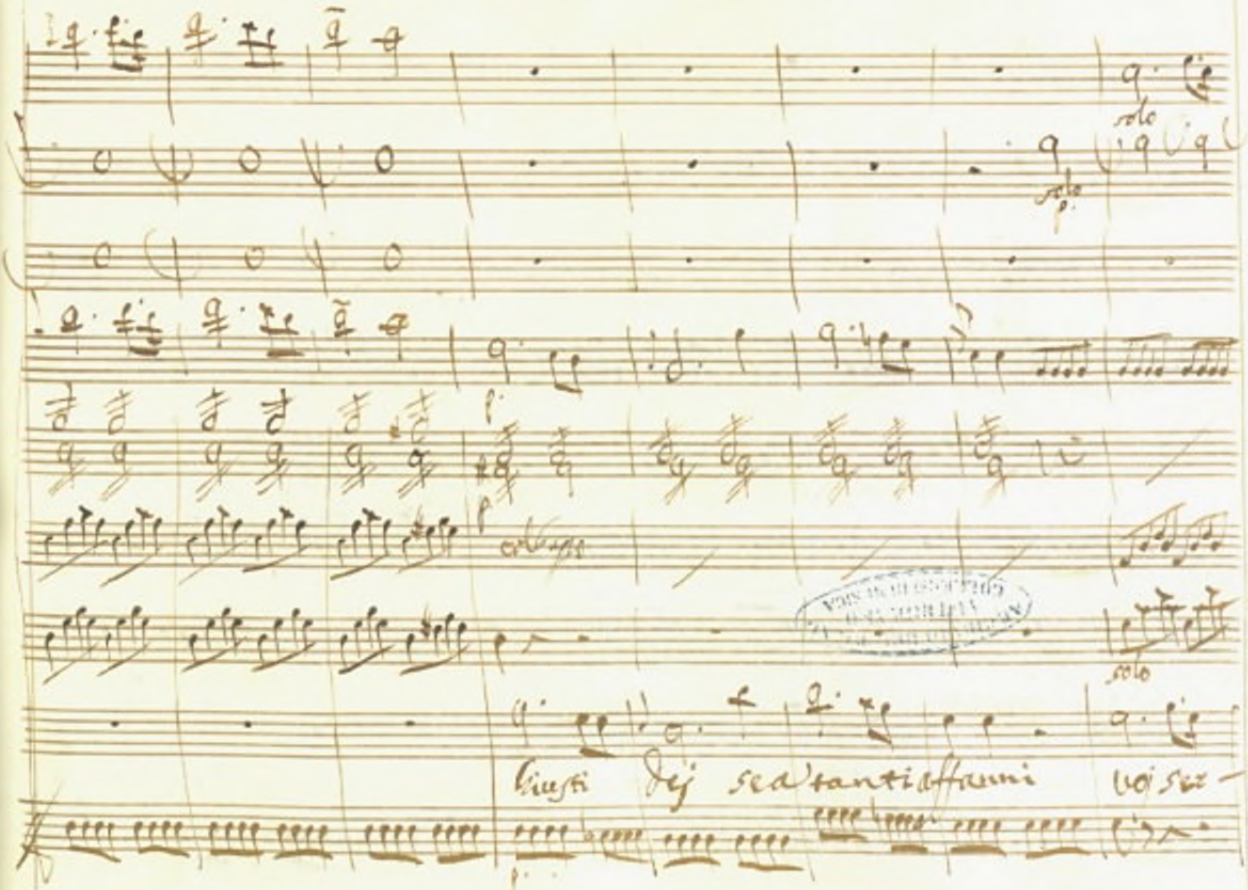 solo
solo
p.
p.
p
solo
Giusti Dej se a tanti affanni voi ser-
p.